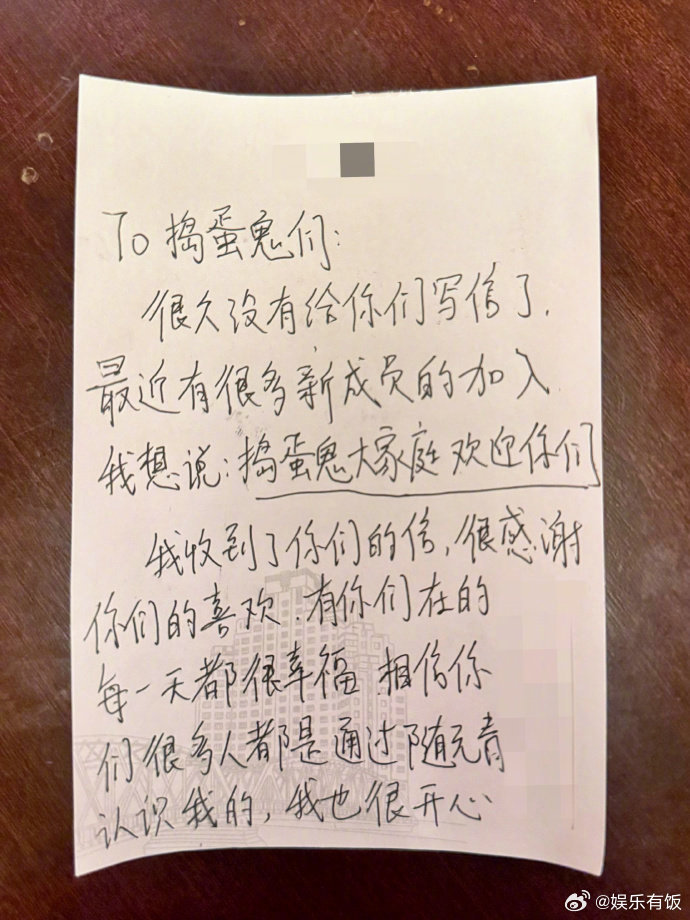 To 捣蛋鬼们:
很久没有给你们写信了.
最近有很多新成员的加入
我想说:捣蛋鬼大家庭欢迎你们
我收到了你们的信,很感谢
你们的喜欢.有你们在的
每一天都很幸福 相信你
们很多人都是通过随元青
认识我的,我也很开心
@娱乐有饭